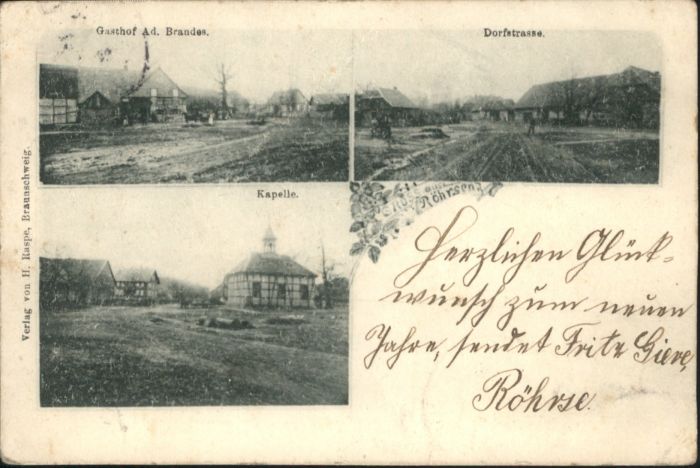 Gasthof Ad. Brandes.
Dorfstrasse.
Kapelle.
Verlag von H. Raspe, Braunschweig.
aus
Röhrsen.
Herzlichen Glück-
wunsch zum neuen
Jahre, sendet Fritz
Röhrse